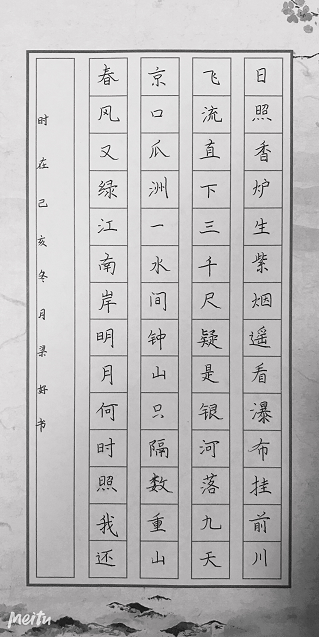 日照香炉生紫烟遥看瀑布挂前川
飞流直下三千尺疑是银河落九天
京口瓜洲一水间钟山只隔数重山
春风又绿江南岸明月何时照我还
时在己亥冬月梁好书
Meitu